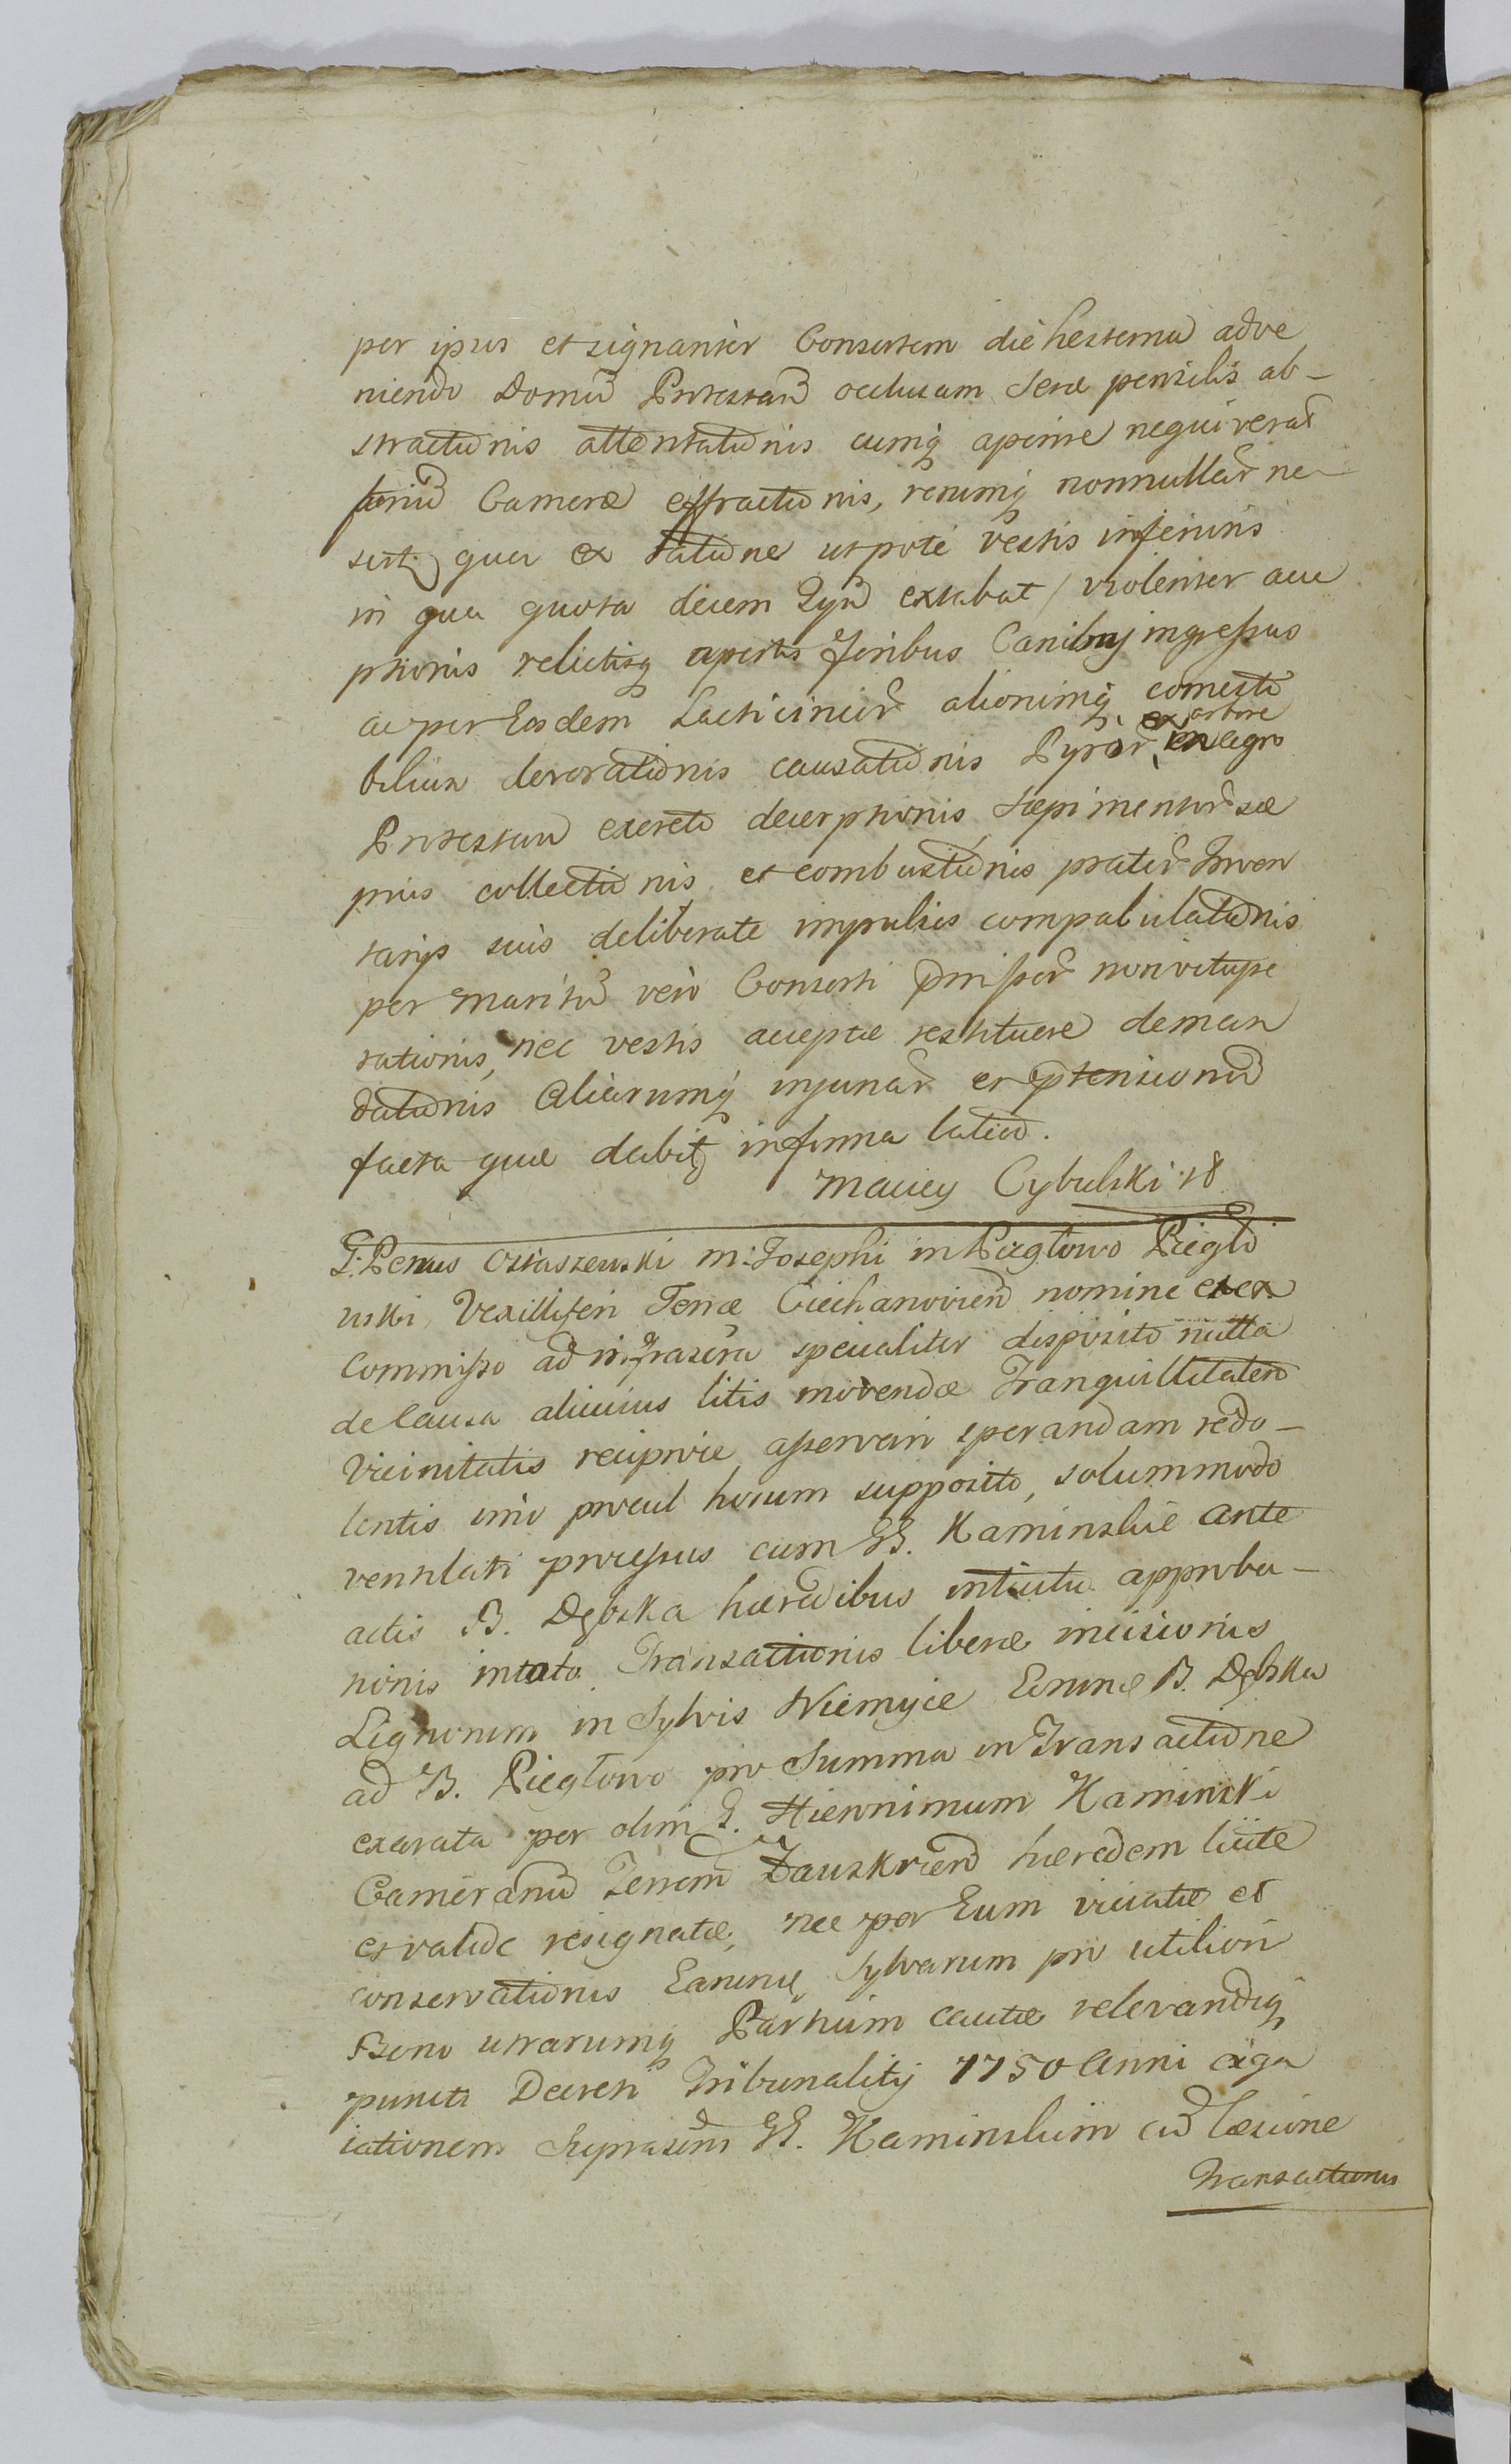 per ipsos et signanter Consortem die hesterna adve
niendo Domũ Protestanẽ occlusam Seræ pensilis ab-
stractionis attentationis cumq aperire nequiverat
foriũ Cameræ effractionis, rerumq nonnullar̃ ne
sert. qua ex ratione utpote vestis inferioris
in qua quota decem Tynf extabat / violenter acce
ptionis relictisq apertis foribus Canibuq ingressus
ac per Eosdem Lacticinior̃ aliorumq comesti
bilium devorationis causationis Pyror̃ ex arbore in agro
Protestan excreto decerptionis Sæpimentor̃ sæ
pius collectionis et combustionis prator̃ Inven
tarijs suis deliberate impulsis compabulationis
per maritũ vero Consorti prmissor̃ non vitupe
rationis, nec vestis acceptæ restituere deman
dationis Aliarumq injuriar̃ et ptensionũ
facta quæ dabit in forma latiori.
Maciey Cybulski 18
G. Petrus Ostaszewski M. Josephi in Pieglowo Pieglo
wski Vexilliferi Terræ Ciechanovien nomine et ex
commisso ad infrascra specialiter disposito nulla
de causa alicuius litis movendæ Tranquillitatem
Vicinitatis reciproce asservari sperandam redo-
lentis imo procul horum supposito, solummodo
ventilati processus cum GG. Kaminskie ante
actis B. Dębska hæredibus intuitu approba-
tionis intuto Transactionis liberæ incisionis
Lignorum in Sylvis Niemyje Earund B. Dębska
ad B. Pieglowo pro Summa in Transactione
exarata per olim G. Hieronimum Kaminski
Camerariũ Terrem Zauskrien hæredem licite
et valide resignatæ, nec per Eum viciatæ et
conservationis Earunq Sylvarum pro utiliori
Bono utrarumq Partium cautæ relevandiq
puncti Decreti Tribunalitij 1750 Anni
cationem Suprascris GG. Kaminskim cũ læsione
Transactionis